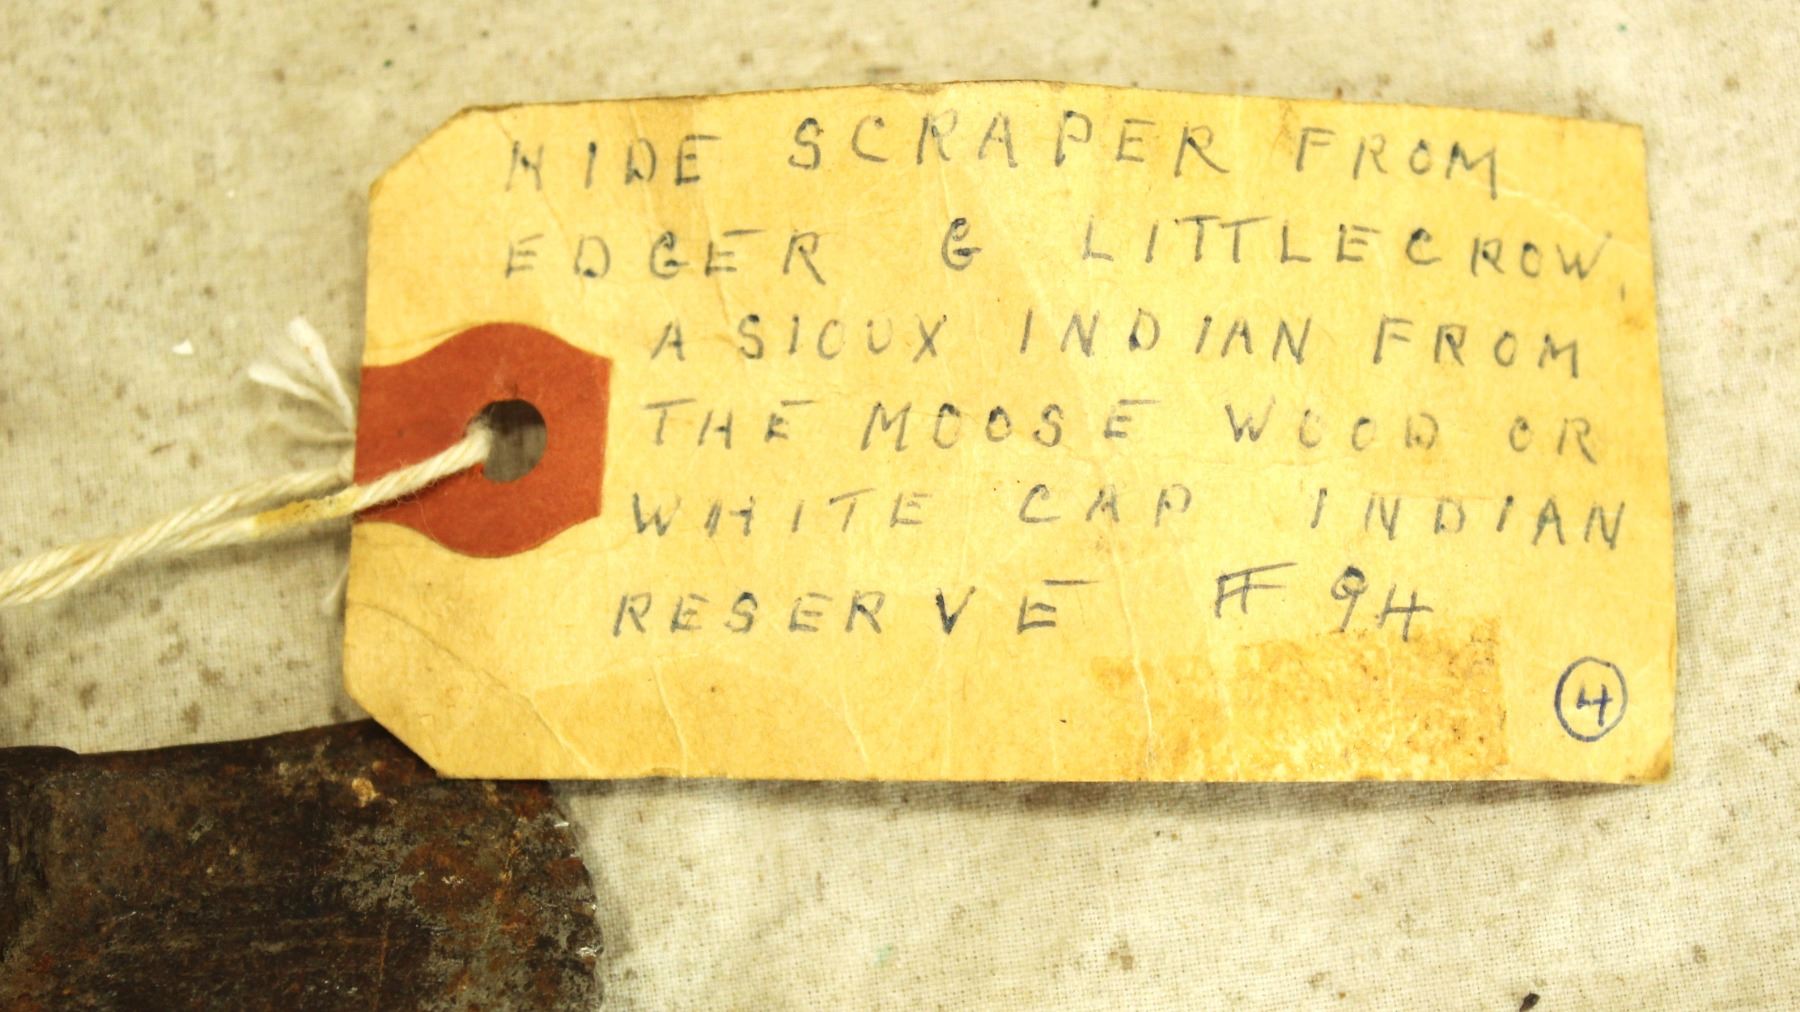 HIDE SCRAPER FROM
EDGER G LITTLECROW,
A SIOUX INDIAN FROM
THE MOOSE WOOD OR
WHITE CAP INDIAN
RESERVE # 94
4